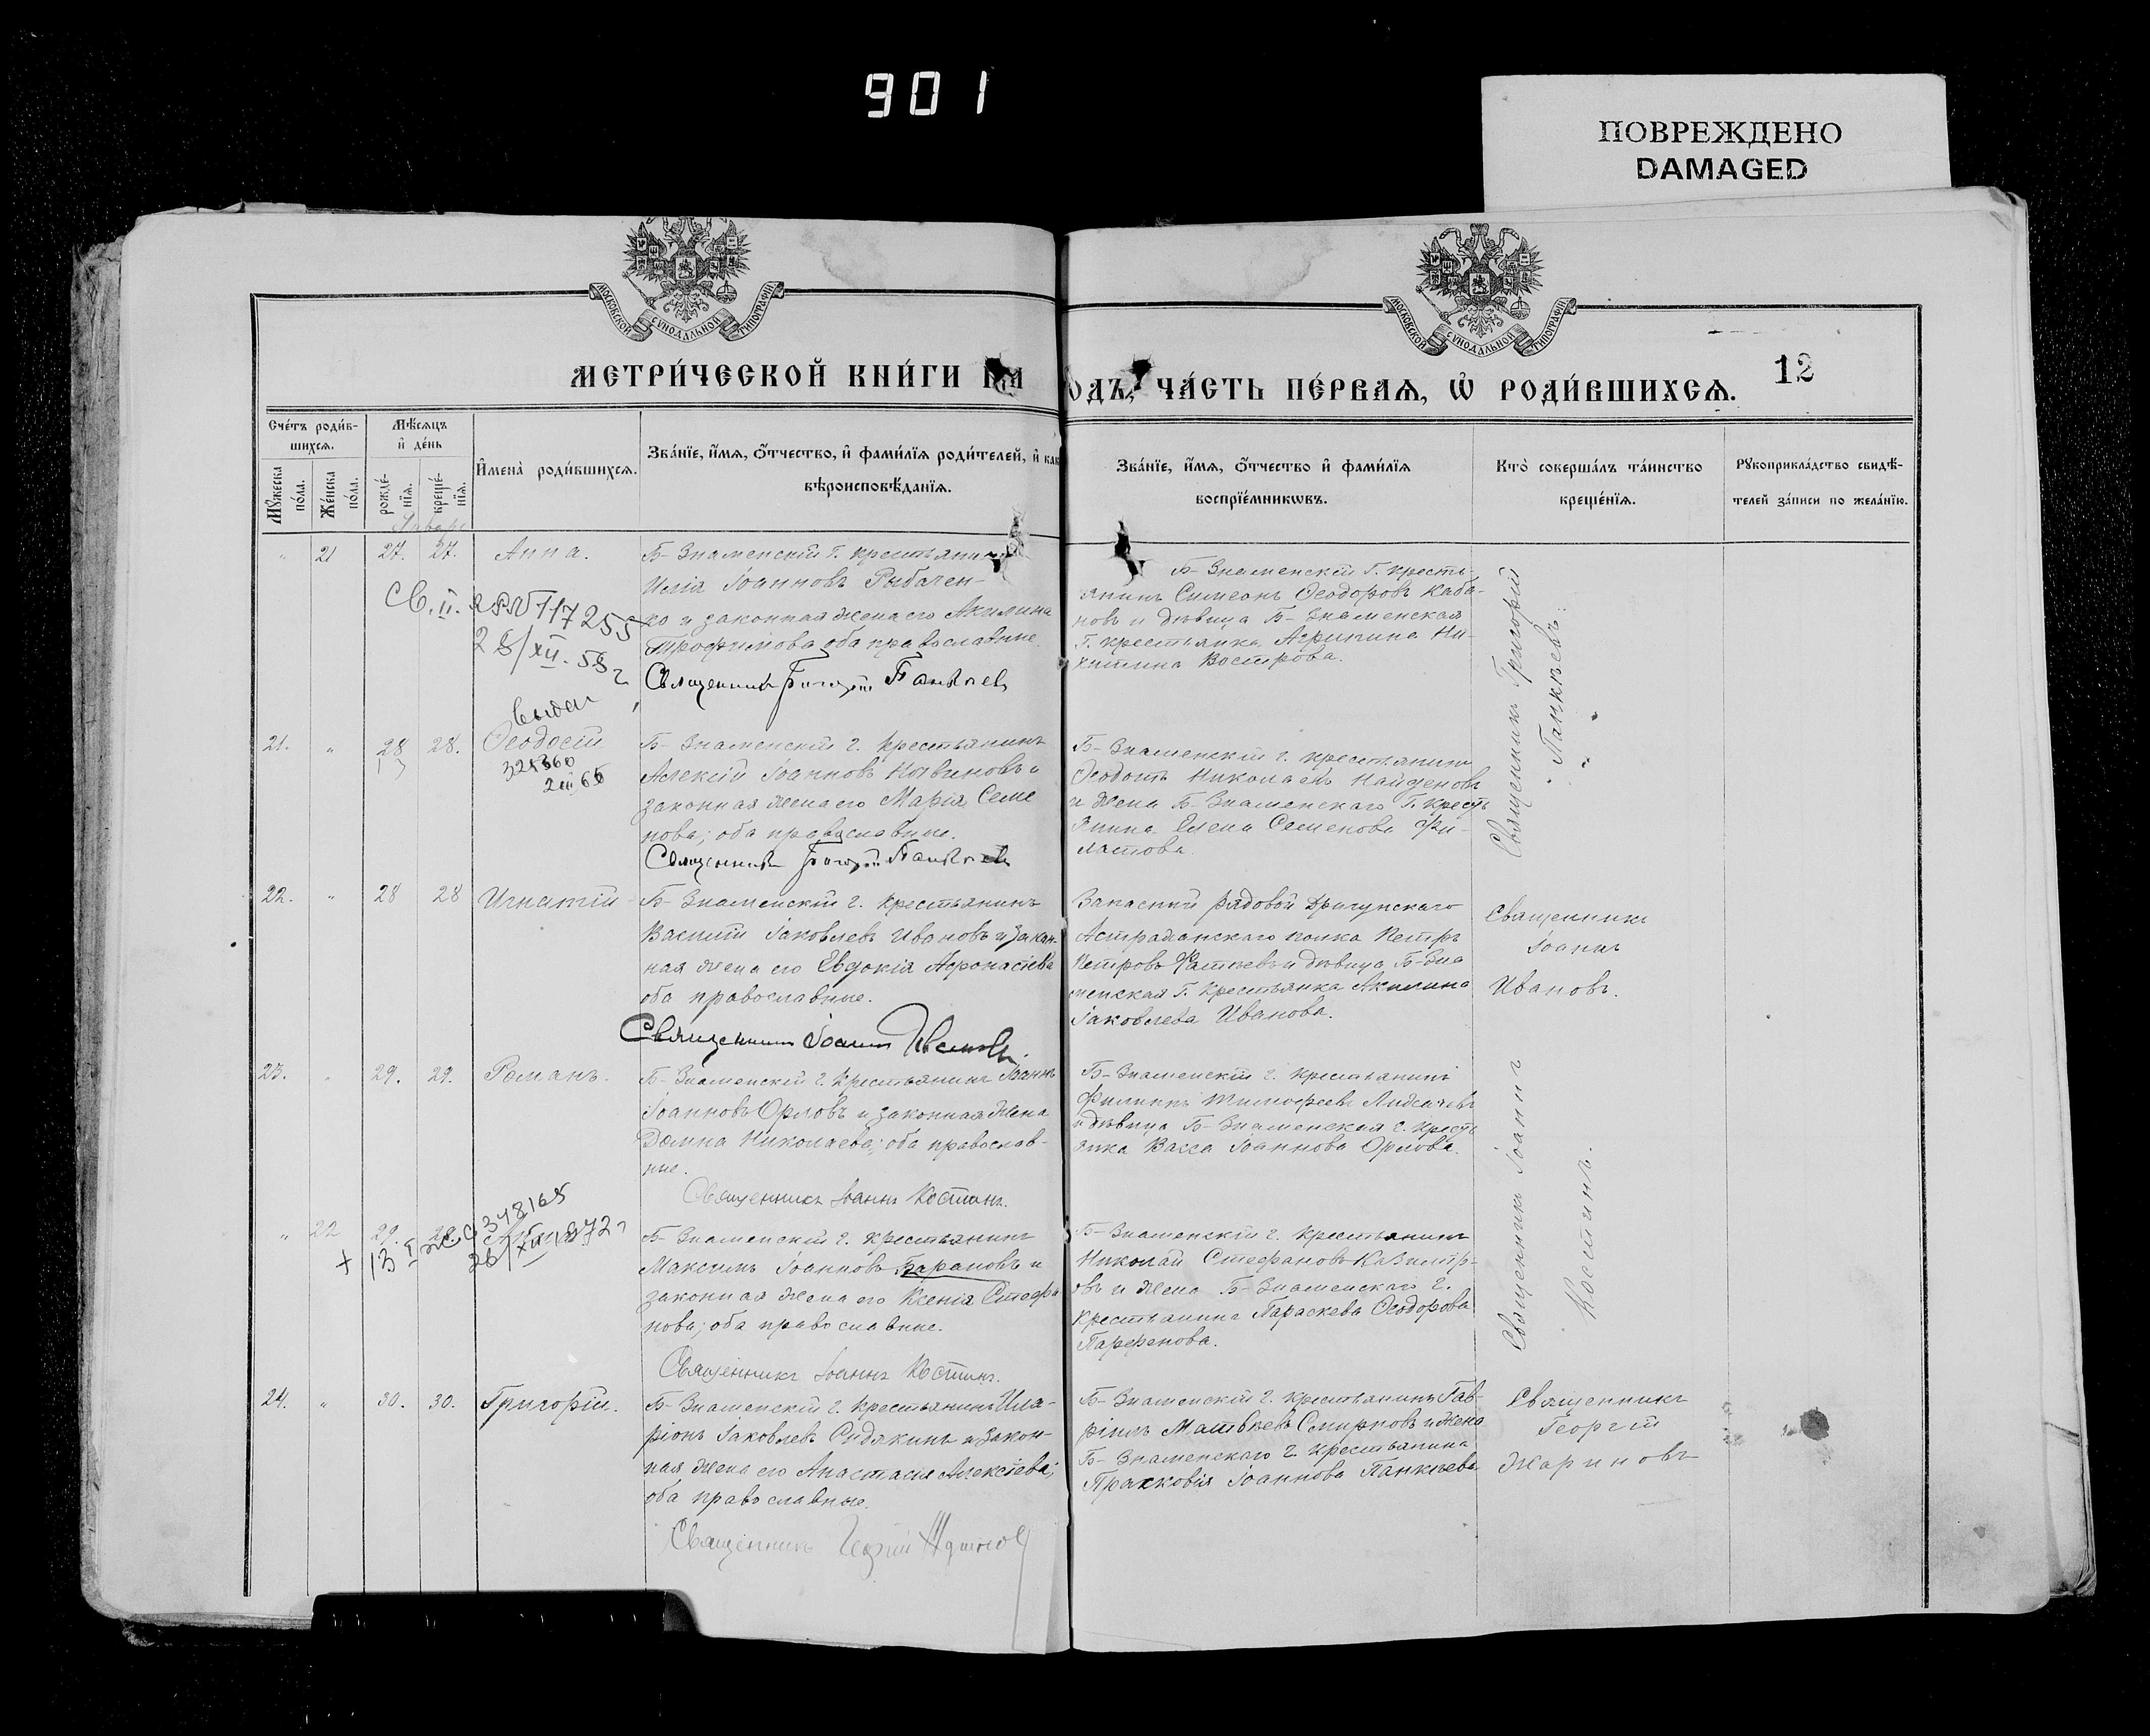 901
ПОВРЕЖДЕНО
DAMAGED
МОСКОВСКОЙ СѴНОДАЛЬНОЙ ТИПОГРАФІИ
МОСКОВСКОЙ СѴНОДАЛЬНОЙ ТИПОГРАФІИ
МЕТРИ́ЧЕСКОЙ КНИ́ГИ НА
ОДЪ, ЧА́СТЬ ПЕ́РВАѦ, Ѡ҆ РОДИ́ВШИХСѦ.
12
Сче́тъ роди́в-
шихсѧ.
Мꙋ́жеска по́ла.
Же́нска по́ла.
Мѣ́сѧцъ
и҆ де́нь
рожде́-
нїѧ.
креще́-
нїѧ.
И҆мена̀ роди́вшихсѧ.
Зва́нїе, и҆́мѧ, о҆́тчество, и҆ фами́лїѧ роди́телей, и҆ как
вѣроисповѣ́данїѧ.
Зва́нїе, и҆́мѧ, о҆́тчество и҆ фами́лїѧ
воспрїе́мникѡвъ.
Кто̀ соверша́лъ та́инство
креще́нїѧ.
Рꙋкоприкла́дство свидѣ́-
телей за́писи по жела́нїю.
" 21 27. 27. Анна.
Б-Знаменскій г. крестьянин
Илія Іоанновъ Рыбачен-
ко и законная жена его Акилина
Трофимова оба православные.
Священникъ Григорій Панкѣев
Б-Знаменскій г. кресть-
янинъ Симеонъ Ѳеодоровъ Каба-
новъ и дѣвица Б-Знаменская
г. крестьянка Агрипина Ни-
китина Вострова.
Священникъ Григорій
Панкѣевъ.
Св. II.
117255
28/XII. 58 г
21. " 28 28. Ѳеодосій
2 III 66
Б-Знаменскій г. крестьянинъ
Алексій Іоанновъ и
законная жена его Марія Семе
нова; оба православные.
Священникъ Григорій Панкѣев
Б-Знаменскій г. крестьянинъ
Николаевъ Найденовъ
и жена Б-Знаменскаго г. кресть
янина Елена Семенова Фи-
латова.
22. " 28 28 Игнатій
Б-Знаменскій г. крестьянинъ
Василій Іаковлевъ Ивановъ и закон-
ная жена его Евдокія Афонасіева
оба православные.
Священникъ Іоаннъ Ивановъ
Запасный рядовой Драгунскаго
Астраханскаго полка Петръ
Петровъ и дѣвица Б-Зна
менская г. крестьянка Акилина
Іаковлева Иванова.
Священникъ
Іоаннъ
Ивановъ.
23. " 29. 29. Романъ.
Б-Знаменскій г. крестьянинъ Іоаннъ
Іоанновъ Орловъ и законная жена
Домна Николаева; оба православ-
ные.
Священникъ Іоаннъ Костинъ.
Б-Знаменскій г. крестьянинъ
Филиппъ Тимофеевъ
и дѣвица Б-Знаменская г. кресть
янка Васса Іоаннова Орлова.
Священникъ Іоаннъ
Костинъ.
" 22 29. 29.
Б-Знаменскій г. крестьянинъ
Максимъ Іоанновъ Барановъ и
законная жена его Ксенія Стефа
нова; оба православные.
Священникъ Іоаннъ Костинъ.
Б-Знаменскій г. крестьянинъ
Николай Стефановъ
овъ и жена Б-Знаменскаго г.
крестьянина Параскева Ѳеодорова
Парфенова.
24. " 30. 30. Григорій.
Б-Знаменскій г. крестьянинъ Ила-
ріонъ Іаковлевъ Сидякинъ и закон-
ная жена его Анастасія Алексіева;
оба православные.
Священникъ Георгій Жариновъ
Б-Знаменскій г. крестьянинъ Гав-
ріилъ Матвѣевъ Смирновъ и жена
Б-Знаменскаго г. крестьянина
Прасковія Іоаннова Панкѣева
Священникъ
Георгій
Жариновъ